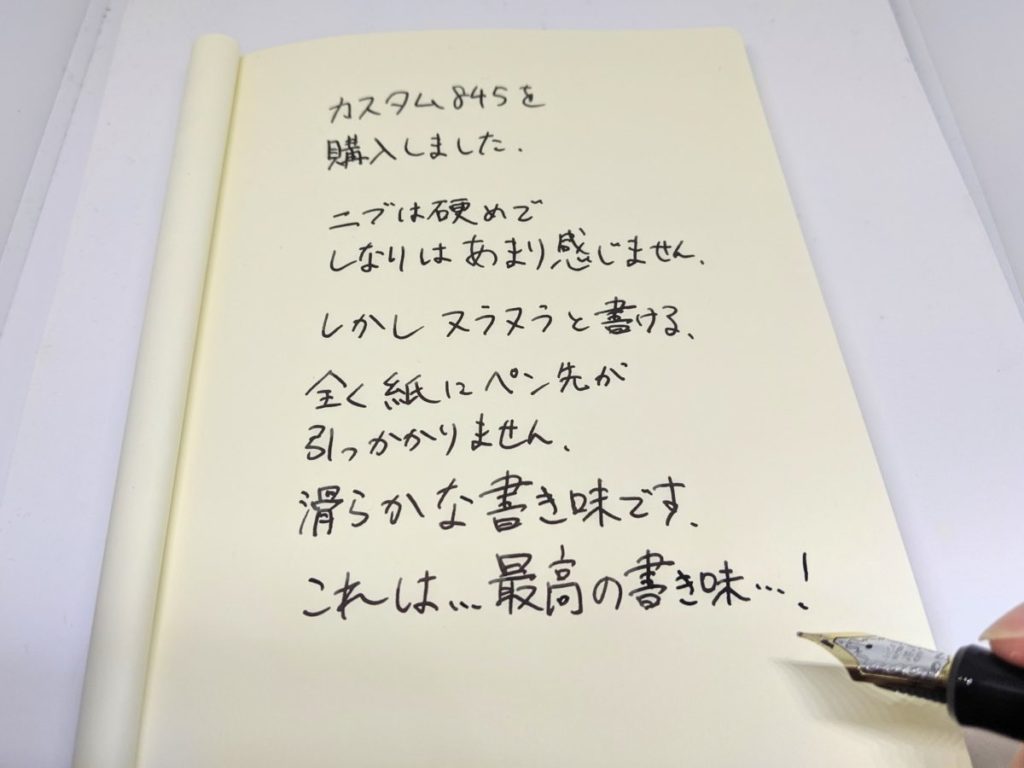 カスタム845を
購入しました.
ニブは硬めで
しなりはあまり感じません.
しかしヌラヌラと書ける、
全く紙にペン先が
引っかかりません.
滑らかな書き味です.
これは…最高の書き味…!